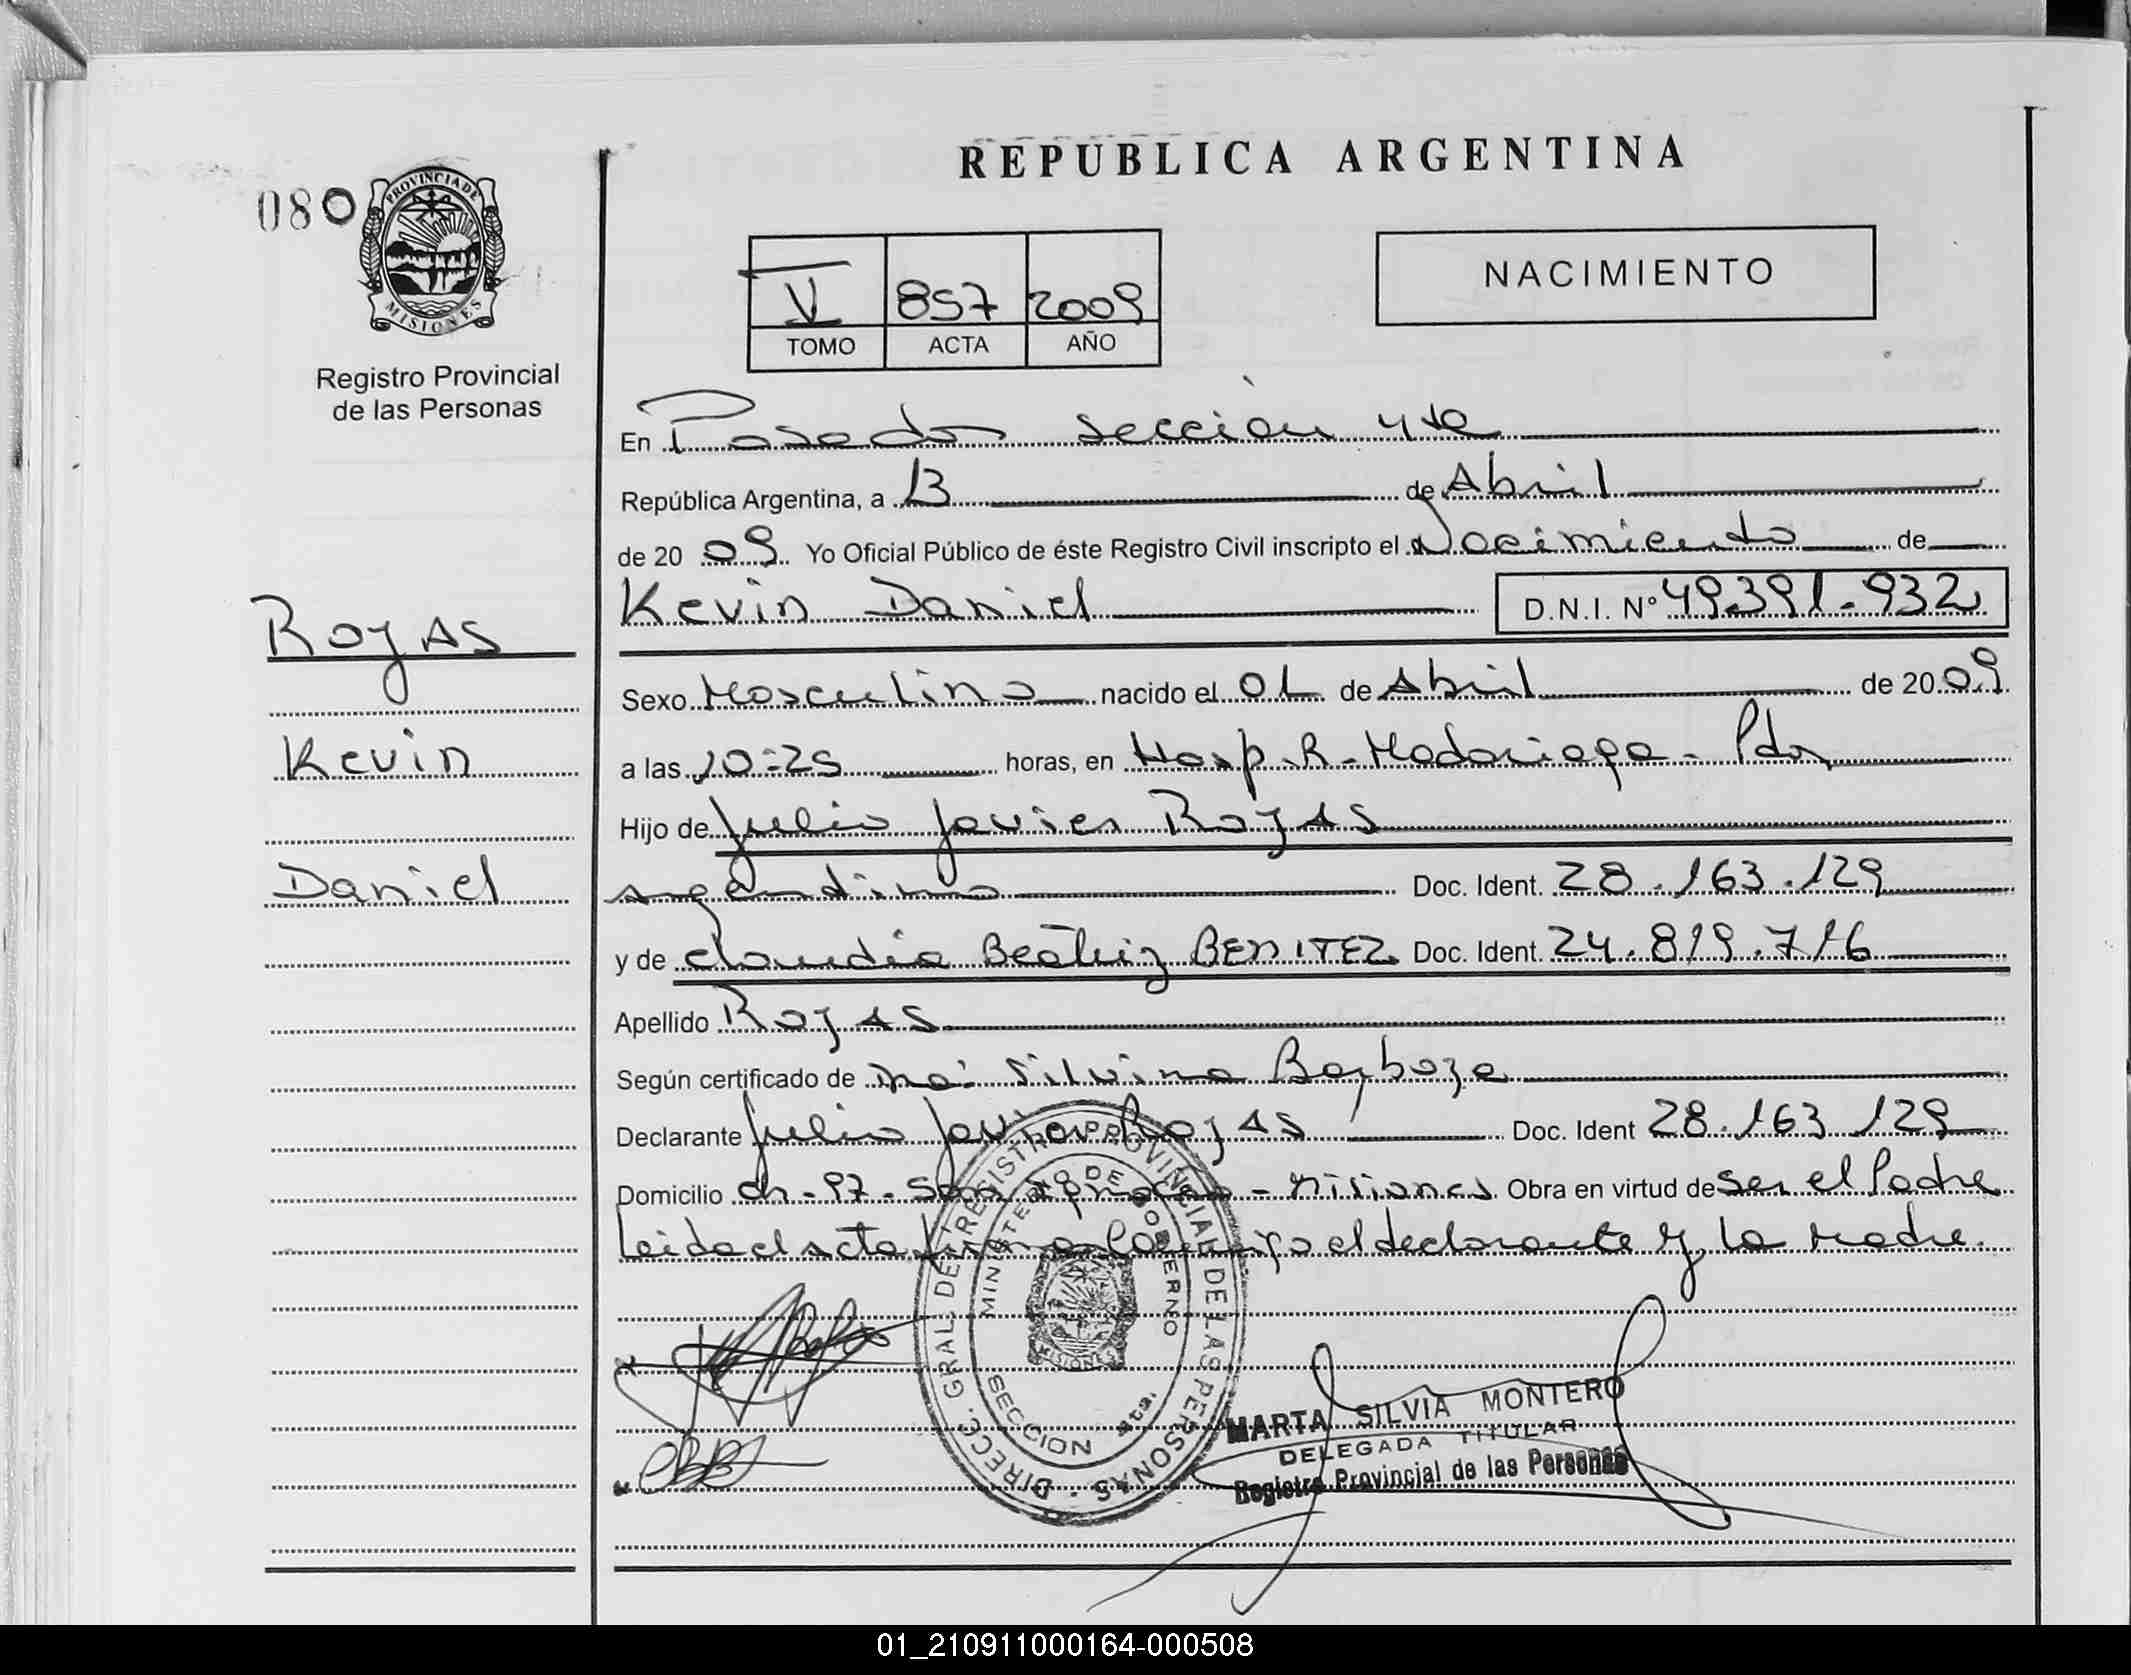 REPUBLICA ARGENTINA
080
PROVINCIA DE MISIONES
Registro Provincial
de las Personas
V 857 2009
TOMO ACTA AÑO
NACIMIENTO
En Posadas Sección 4ta
República Argentina, a 13 de Abril
de 20 09 Yo Oficial Público de éste Registro Civil inscripto el Nacimiento de
Kevin Daniel D.N.I. Nº 49.391.932
Rojas
Kevin
Daniel
Sexo Masculino nacido el 01 de Abril de 20 09
a las 10:25 horas, en Hosp. R. Madariaga - Pdas
Hijo de Julio Javier Rojas
argentino Doc. Ident. 28.163.129
y de Claudia Beatriz BENITEZ Doc. Ident. 24.819.716
Apellido Rojas
Según certificado de Silvina Barboza
Declarante Julio Javier Rojas Doc. Ident 28.163 129
Domicilio ch - 97 - San Ignacio - Misiones Obra en virtud de Ser el Padre
Leida el acta firma Conmigo el declarante y la Madre.
DIRECC. GRAL. DEL REGISTRO PROVINCIAL DE LAS PERSONAS
MINISTERIO DE GOBIERNO
MISIONES
SECCION 4ta.
MARTA SILVIA MONTERO
DELEGADA TITULAR
Registro Provincial de las Personas
01_210911000164-000508